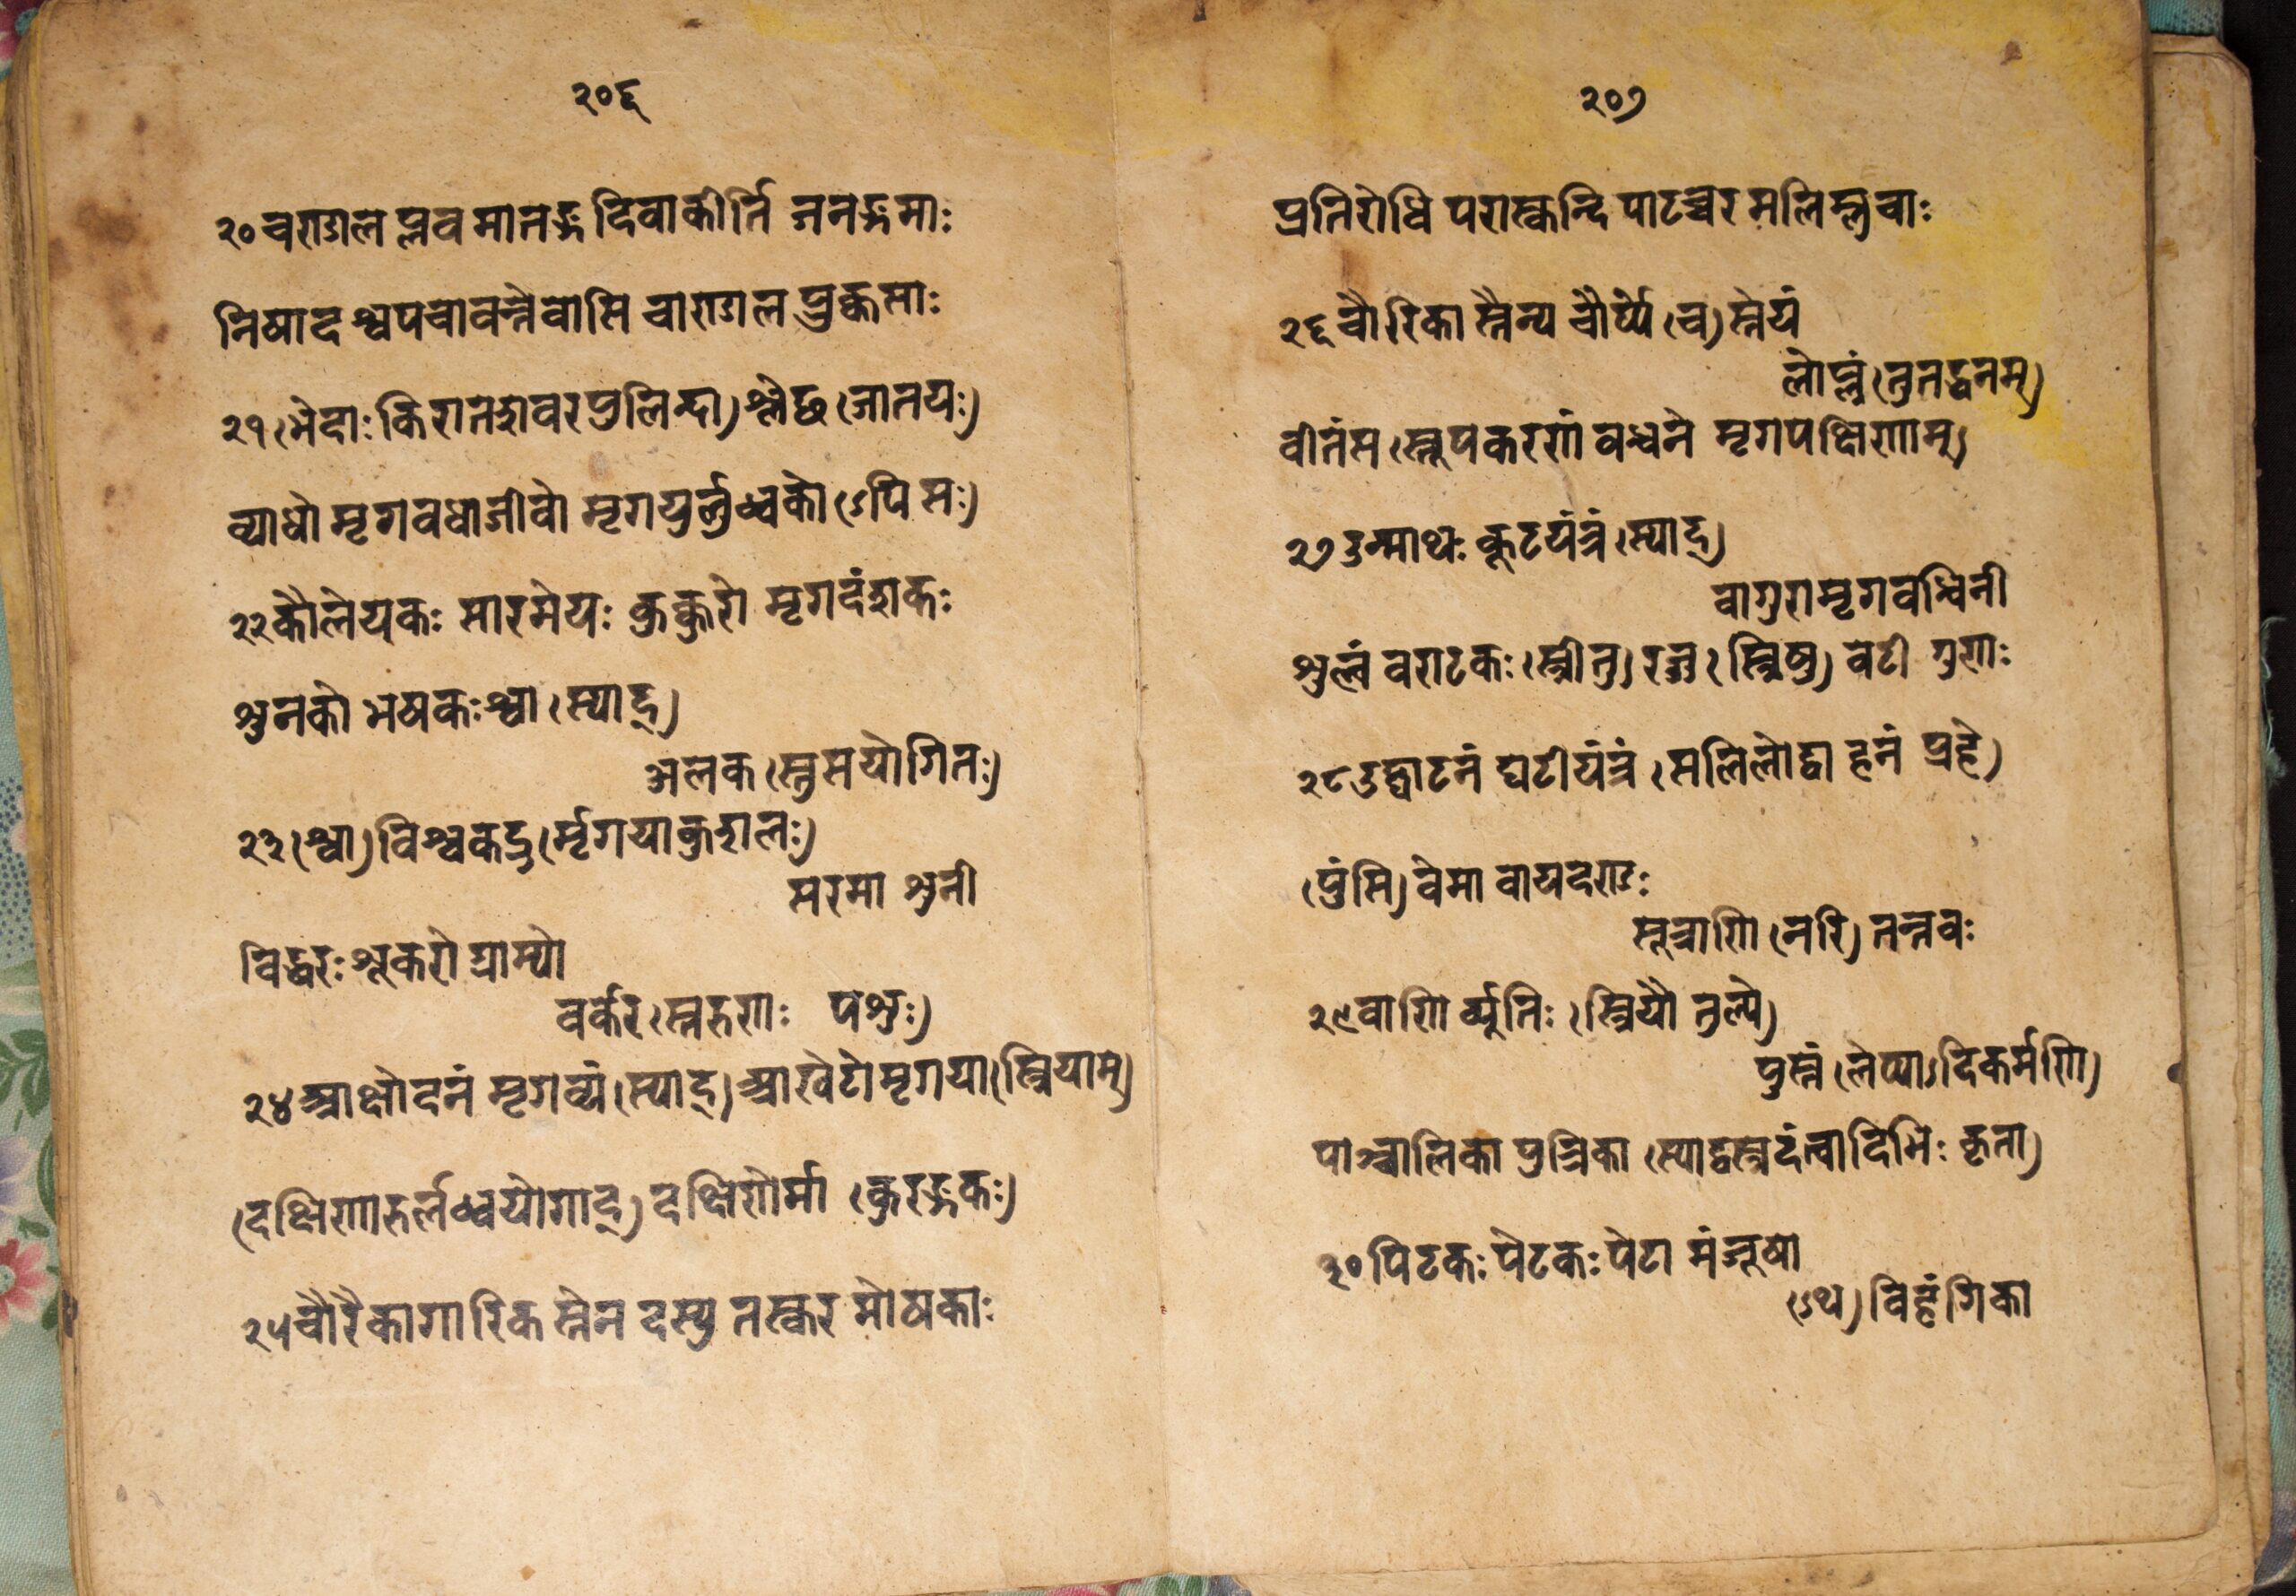 २०६
२० चराडाल प्लव मातङ्ग दिवाकीर्ति जनङ्गमाः
निषाद श्वपचावन्तेवासि चाराडाल पुक्कसाः
२१ (भेदाः किरातशवरपुलिन्दा) म्लेछ (जातयः)
व्याधो मृगवधाजीवो मृगयुर्लुब्धको (ऽपि सः)
२२ कौलेयकः सारमेयः कुक्कुरो मृगदंशकः
शुनको भषकः श्वा (स्याद्)
अलर्क (स्तु स योगितः)
२३ (श्वा) विश्वकद्रु (र्मृगयाकुशलः)
सरमा शुनी
विट्चरः शूकरो ग्राम्यो
वर्कर (स्तरुणः पशुः)
२४ आक्षोदनं मृगव्यं (स्याद्) आखेटो मृगया (स्त्रियाम्)
(दक्षिणारुर्लब्धयोगाद्) दक्षिणेर्मा (कुरङ्गकः)
२५ चौरैकागारिक स्तेन दस्यु तस्कर मोषकाः
२०७
प्रतिरोधि परास्कन्दि पाटच्चर मलिम्लुचाः
२६ चौरिका स्तैन्य चौर्य्ये (च) स्तेयं
लोप्त्रं (तु तद्धनम्)
वीतंस (स्तूपकरणं बन्धने मृगपक्षिणाम्)
२७ उन्माथः कूटयंत्रं (स्याद्)
वागुरा मृगवन्धिनी
शुल्वं वराटकः (स्त्री तु) रज्जु (स्त्रिषु) वटी गुणः
२८ उद्घाटनं घटीयंत्रं (सलिलोद्वाहनं प्रहे)
(पुंसि) वेमा वायदण्डः
सूत्राणि (नरि) तन्तवः
२९ वाणि र्व्यूतिः (स्त्रियौ तुल्ये)
पुस्तं (लेप्याऽदिकर्मणि)
पाञ्चालिका पुत्रिका (स्याद्वस्त्रदंत्वादिभिः कृता)
३० पिटकः पेटकः पेटा मंजूषा
(ऽथ) विहंगिका